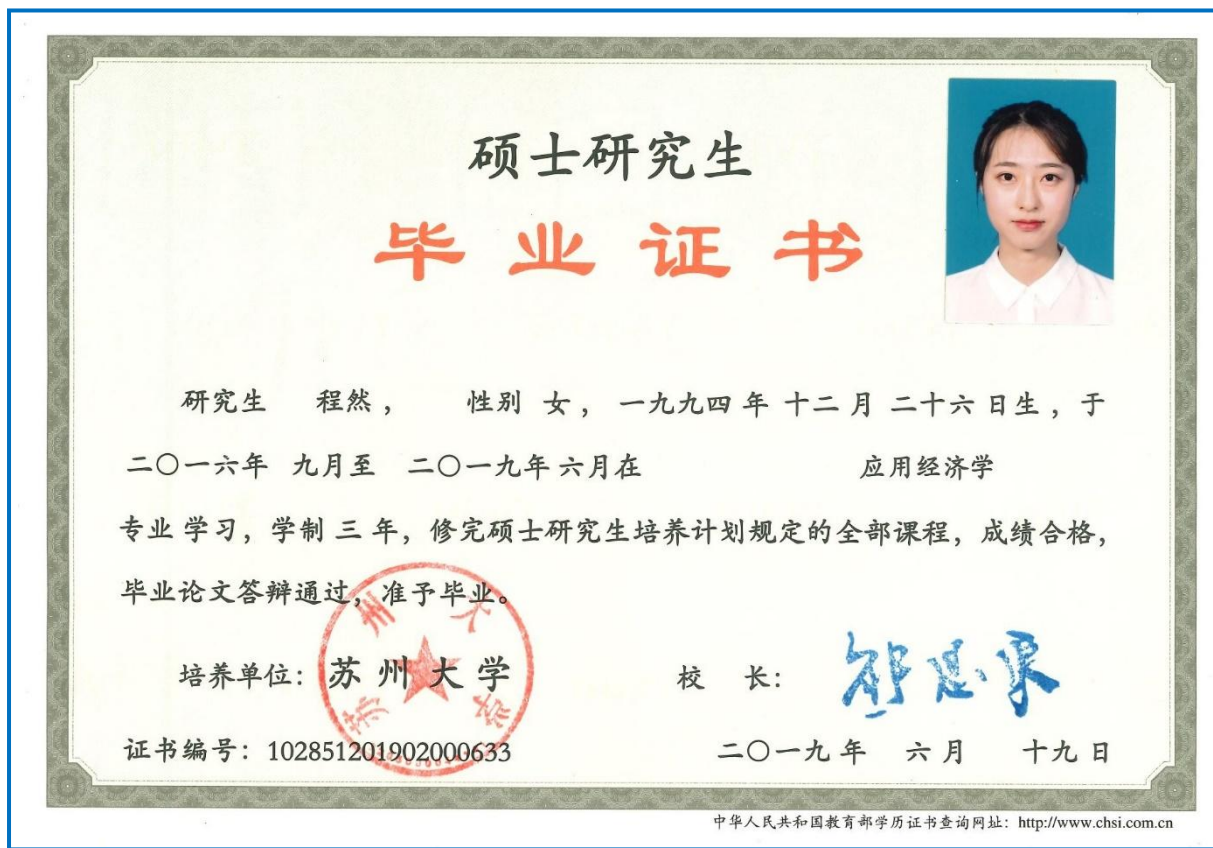 硕士研究生
毕业证书
研究生 程然， 性别 女， 一九九四 年 十二 月 二十六 日生，于
二〇一六年 九月至 二〇一九年 六月在 应用经济学
专业 学习，学制 三 年，修完硕士研究生培养计划规定的全部课程，成绩合格，
毕业论文答辩通过，准予毕业。
培养单位：苏州大学 校 长：
苏州大学
证书编号：102851201902000633 二〇一九年 六月 十九日
中华人民共和国教育部学历证书查询网址：http://www.chsi.com.cn